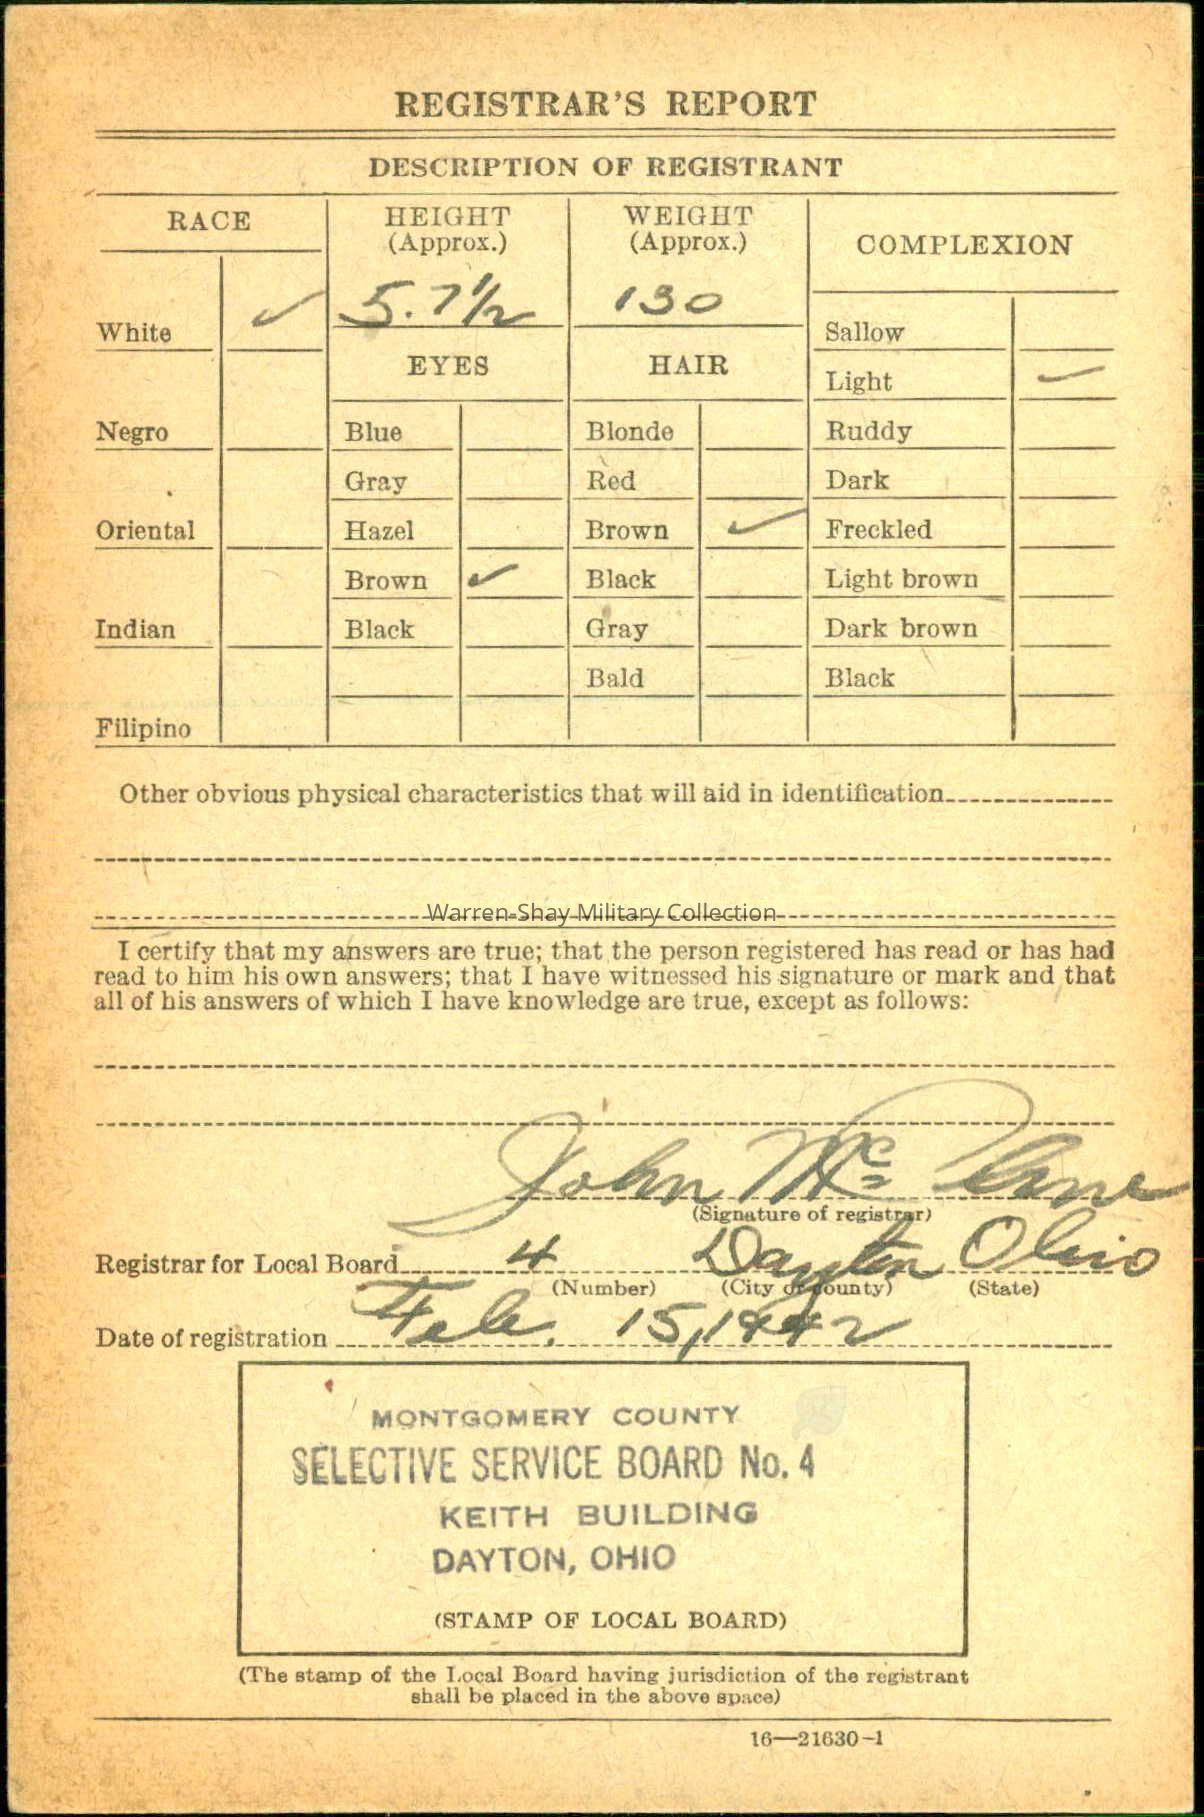 REGISTRAR'S REPORT
DESCRIPTION OF REGISTRANT
RACE
HEIGHT
(Approx.)
WEIGHT
(Approx.)
COMPLEXION
White ✓
5. 7 1/2
130
Sallow
EYES
HAIR
Light ✓
Negro
Blue
Blonde
Ruddy
Gray
Red
Dark
Oriental
Hazel
Brown ✓
Freckled
Brown ✓
Black
Light brown
Indian
Black
Gray
Dark brown
Bald
Black
Filipino
Other obvious physical characteristics that will aid in identification
Warren-Shay Military Collection
I certify that my answers are true; that the person registered has read or has had
read to him his own answers; that I have witnessed his signature or mark and that
all of his answers of which I have knowledge are true, except as follows:
John Mc
(Signature of registrar)
Registrar for Local Board 4 Dayton Ohio
(Number) (City or county) (State)
Date of registration Feb. 15, 1942
MONTGOMERY COUNTY
SELECTIVE SERVICE BOARD No. 4
KEITH BUILDING
DAYTON, OHIO
(STAMP OF LOCAL BOARD)
(The stamp of the Local Board having jurisdiction of the registrant
shall be placed in the above space)
16—21630-1